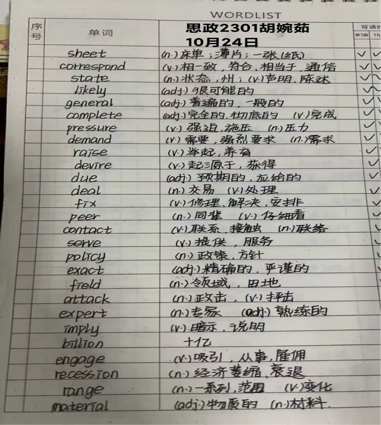 WORDLIST
序号 单词 思政2301胡婉茹
10月24日
sheet (n.)床单;薄片;一张(纸)
correspond (v.)相一致,符合,相当于,通信
state (n.)状态,州;(v.)声明,陈述
likely (adj.)很可能的
general (adj.)普遍的,一般的
complete (adj.)完全的,彻底的 (v.)完成
pressure (v.)强迫,施压 (n.)压力
demand (v.)需要,强烈要求 (n.)需求
raise (v.)举起,养育
devire (v.)起源于,获得
due (adj.)预期的,应给的
deal (n.)交易 (v.)处理
fix (v.)修理,解决,安排
peer (n.)同辈 (v.)仔细看
contact (v.)联系,接触 (n.)联络
serve (v.)提供,服务
policy (n.)政策,方针
exact (adj.)精确的,严谨的
field (n.)领域,田地
attack (n.)攻击,(v.)抨击
expert (n.)专家 (adj.)熟练的
imply (v.)暗示,说明
billion 十亿
engage (v.)吸引,从事,雇佣
recession (n.)经济萎缩,衰退
range (n.)一系列,范围 (v.)变化
material (adj.)物质的 (n.)材料.